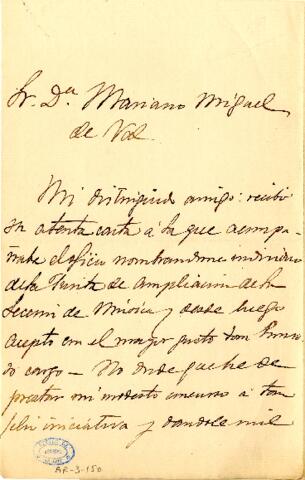 Sr. Dn. Mariano Miguel
de Val.
Mi distinguido amigo: recibo
su atenta carta á la que acompa-
ñaba el oficio nombrandome individuo
de la Junta de ampliacion de la
Seccion de Música y desde luego
acepto con el mayor gusto tan honro-
so cargo — No dude que he de
prestar mi modesto concurso á tan
feliz iniciativa y dandole mil
AR-3-150